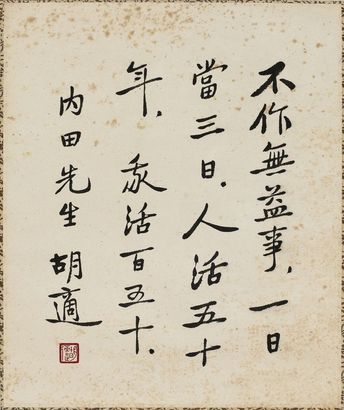 不作無益事，一日
當三日，人活五十
年，我活百五十。
內田先生 胡適